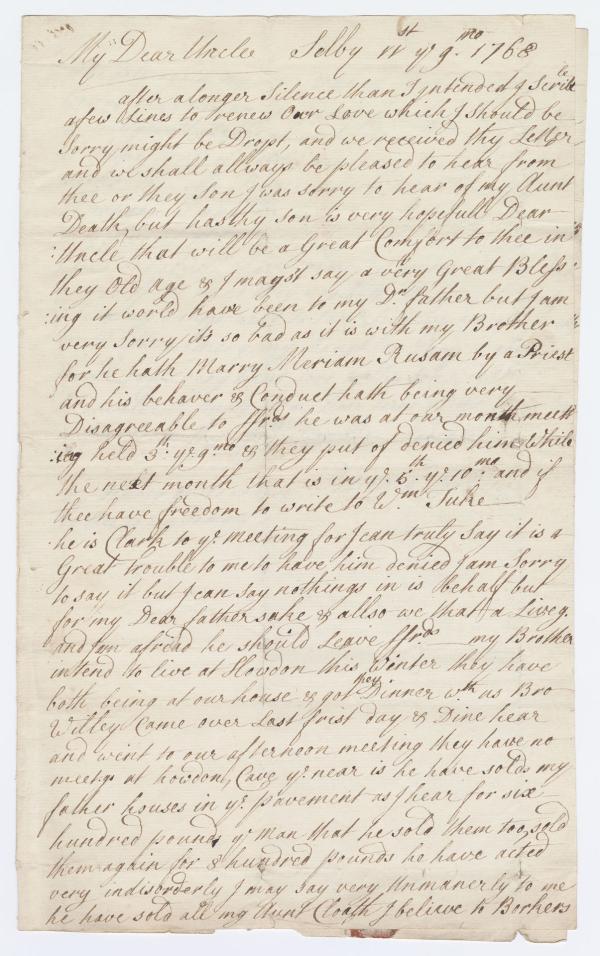 My Dear Uncle Selby 11st ye 9.mo 1768
after a longer Silence than I intended I Scrible
a few Lines to renew Our Love which I should be
Sorry might be Dropt, and we received thy Letter
and we shall allways be pleased to hear from
thee or they Son I was sorry to hear of my Aunt
Death, but has thy son is very hopefull Dear
Uncle that will be a Great Comfort to thee in
they Old age & I mayst say a very Great Bless
:ing it would have been to my Dr father but I am
very Sorry its so bad as it is with my Brother
for he hath Marry Meriam Rusam by a Priest
and his behaver & Conduct hath being very
Disagreeable to ffrds he was at our month meet
ing held 3th ye 9mo & they put of denied him While
the next month that is in ye 5th ye 10mo. and if
thee have freedom to write to Wm Tuke
he is Clark to ye meeting for I can truly Say it is a
Great trouble to me to have him denied I am Sorry
to say it but I can say nothings in is behalf but
for my Dear father sake & allso we that a Liveg.
and I am afread he should Leave ffrds my Brother
intend to live at Howdon this winter they have
both being at our house & got they Dinner wth us Bro
Willey Came over Last frist day & Dine hear
and went to our afternoon meeting they have no
meetg. at howdon, Cave ye near is he have solds my
father houses in ye pavement as I hear for six
hundred pounds ye Man that he sold them too, sold
them again for 8 hundred pounds he have acted
very indisorderly I may say very Unmanerly to me
he have sold all my Aunt Cloath I believe to Borkers